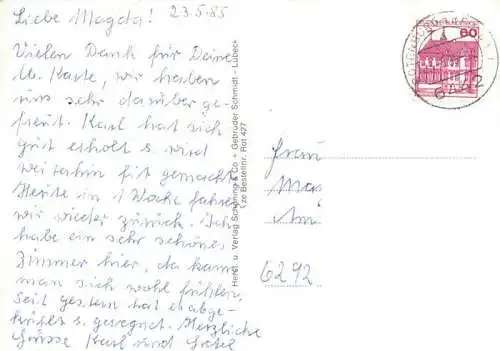 Liebe Magda! 23.5.85
Vielen Dank für Deine
lb. Karte, wir haben
uns sehr darüber ge-
freut. Karl hat sich
gut erholt u. wird
weiterhin fit gemacht
Heute in 1 Woche fahren
wir wieder zurück. Ich
habe ein sehr schönes
Zimmer hier, da kann
man sich wohl fühlen.
Seit gestern hat es abge-
kühlt u. geregnet. Herzliche
Grüsse Karl und
Herst. u. Verlag Schöning & Co + Gebrüder Schmidt - Lübeck
Bestellnr. Rot 427
60
6442
Frau
Mag
Am
6292